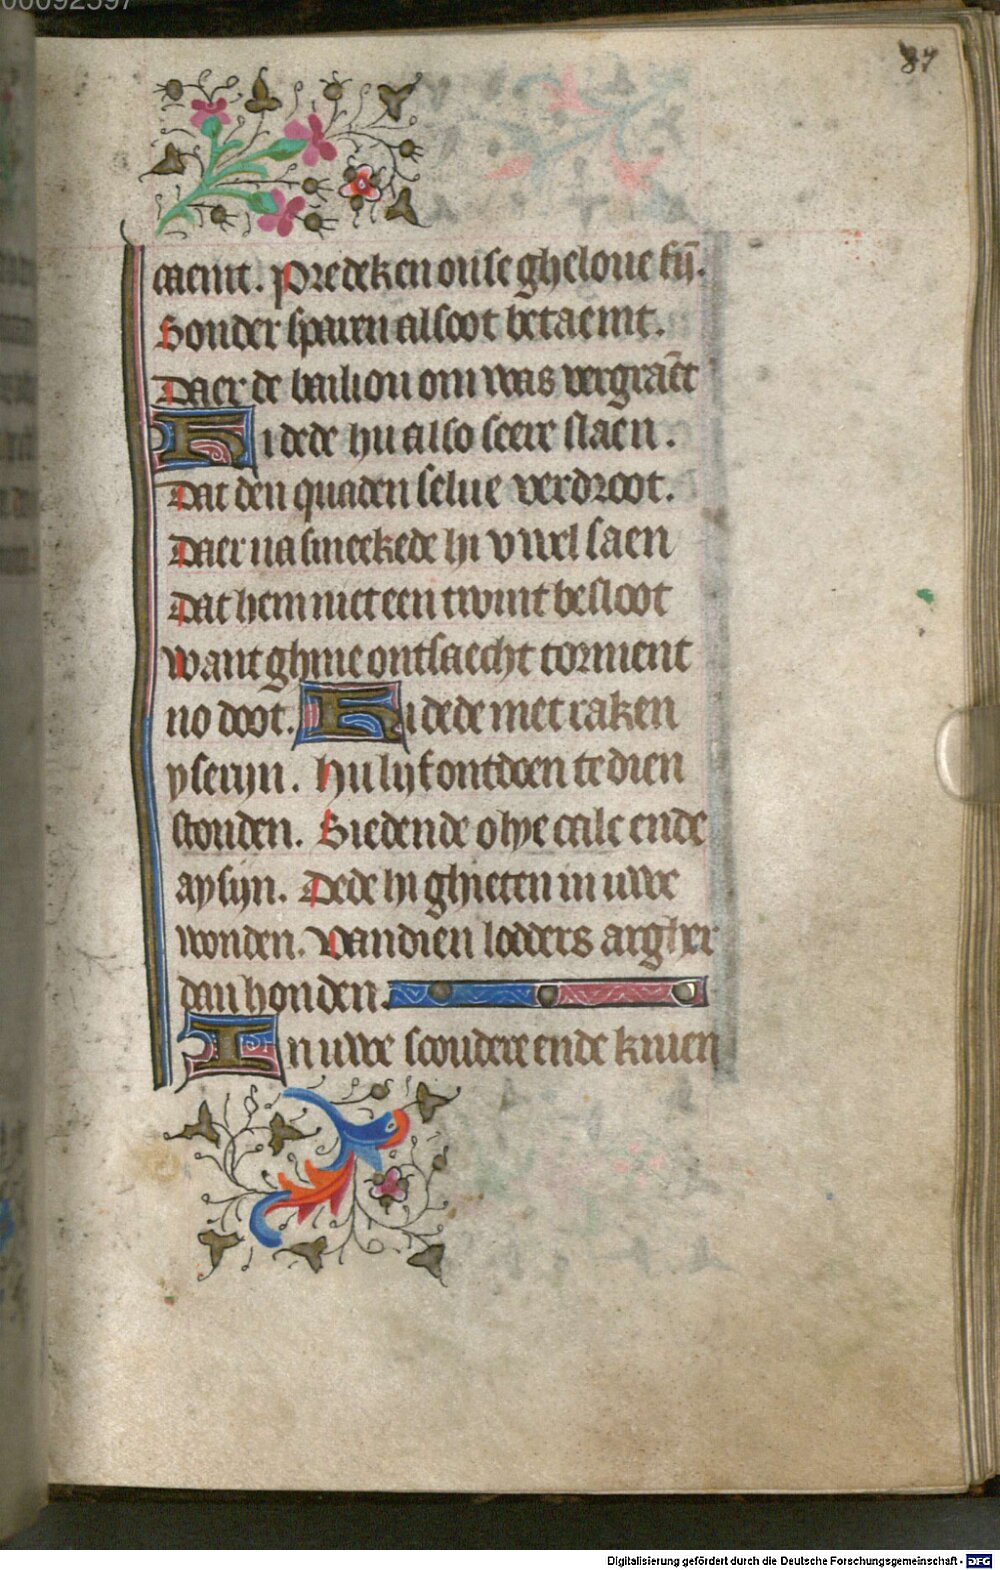 00092597
87
taemt. Predeken onse gheloue fijn.
Sonder sparen alsoot betaemt.
Daer de bailiou om was vergraēt
Hi dede hu also seere slaen.
Dat den quaden selue verdroot.
Daer na smeekede hi v wel saen
Dat hem niet een twint besloot
Want ghine ontsaecht torment
no doot. Hi dede met raken
yserijn. Hu lijf ontdoen te dien
stonden. Siedende olye calc ende
aysijn. Dede hi ghieten in uwe
wonden. Van dien lodders argher
dan honden.
In uwe scoudere ende knien
Digitalisierung gefördert durch die Deutsche Forschungsgemeinschaft - DFG